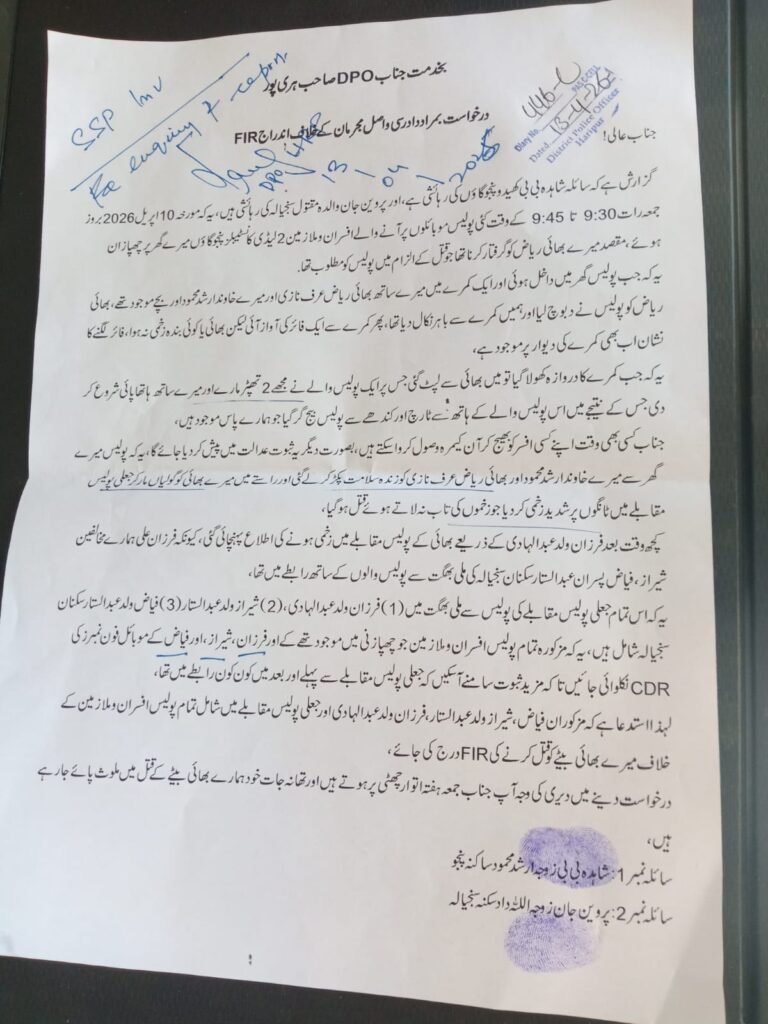 بخدمت جناب DPO صاحب ہری پور
SSP Inv
For enquiry & report
DPO
13-04-2026
Diary No. 446-C
Dated 13-4-26
District Police Officer
Haripur
درخواست بمراد دادرسی واصل مجرمان کے خلاف اندراج FIR
جناب عالی!
گزارش ہے کہ سائلہ شاہدہ بی بی کھیدو پنجو گاؤں کی رہائشی ہے، اور پروین جان والدہ مقتول سنجیالہ کی رہائشی ہیں، یہ کہ مورخہ 10 اپریل 2026 بروز
جمعہ رات 9:30 تا 9:45 کے وقت کئی پولیس موبائلوں پر آنے والے افسران و ملازمین 2 لیڈی کانسٹیبلز پنجو گاؤں میرے گھر پر چھاپازن
ہوئے، مقصد میرے بھائی ریاض کو گرفتار کرنا تھا جو قتل کے الزام میں پولیس کو مطلوب تھا۔
یہ کہ جب پولیس گھر میں داخل ہوئی اور ایک کمرے میں میرے ساتھ بھائی ریاض عرف نازی اور میرے خاوند ارشد محمود اور بچے موجود تھے، بھائی
ریاض کو پولیس نے دبوچ لیا اور ہمیں کمرے سے باہر نکال دیا تھا، پھر کمرے سے ایک فائر کی آواز آئی لیکن بھائی یا کوئی بندہ زخمی نہ ہوا، فائر لگنے کا
نشان اب بھی کمرے کی دیوار پر موجود ہے،
یہ کہ جب کمرے کا دروازہ کھولا گیا تو میں بھائی سے لپٹ گئی جس پر ایک پولیس والے نے مجھے 2 تھپڑ مارے اور میرے ساتھ ہاتھا پائی شروع کر
دی جس کے نتیجے میں اس پولیس والے کے ہاتھ سے ٹارچ اور کندھے سے پولیس بیج گر گیا جو ہمارے پاس موجود ہیں،
جناب کسی بھی وقت اپنے کسی افسر کو بھیج کر آن کیمرہ وصول کروا سکتے ہیں، بصورت دیگر یہ ثبوت عدالت میں پیش کر دیا جائے گا، یہ کہ پولیس میرے
گھر سے میرے خاوند ارشد محمود اور بھائی ریاض عرف نازی کو زندہ سلامت پکڑ کر لے گئی اور راستے میں میرے بھائی کو گولیاں مار کر جعلی پولیس
مقابلے میں ٹانگوں پر شدید زخمی کر دیا جو زخموں کی تاب نہ لاتے ہوئے قتل ہو گیا،
کچھ وقت بعد فرزان ولد عبدالہادی کے ذریعے بھائی کے پولیس مقابلے میں زخمی ہونے کی اطلاع پہنچائی گئی، کیونکہ فرزان علی ہمارے مخالفین
شیراز، فیاض پسران عبدالستار سکنان سنجیالہ کی ملی بھگت سے پولیس والوں کے ساتھ رابطے میں تھا،
یہ کہ اس تمام جعلی پولیس مقابلے کی پولیس سے ملی بھگت میں (1) فرزان ولد عبدالہادی، (2) شیراز ولد عبدالستار (3) فیاض ولد عبدالستار سکنان
سنجیالہ شامل ہیں، یہ کہ مزکورہ تمام پولیس افسران و ملازمین جو چھاپزنی میں موجود تھے کے اور فرزان، شیراز، اور فیاض کے موبائل فون نمبرز کی
CDR نکلوائی جائیں تاکہ مزید ثبوت سامنے آ سکیں کہ جعلی پولیس مقابلے سے پہلے اور بعد میں کون کون رابطے میں تھا،
لہذا استدعا ہے کہ مزکوران فیاض، شیراز ولد عبدالستار، فرزان ولد عبدالہادی اور جعلی پولیس مقابلے میں شامل تمام پولیس افسران و ملازمین کے
خلاف میرے بھائی بیٹے کو قتل کرنے کی FIR درج کی جائے،
درخواست دینے میں دیری کی وجہ آپ جناب جمعہ ہفتہ اتوار چھٹی پر ہوتے ہیں اور تھانہ جات خود ہمارے بھائی بیٹے کے قتل میں ملوث پائے جا رہے
ہیں،
سائلہ نمبر 1: شاہدہ بی بی زوجہ ارشد محمود ساکنہ پنجو
سائلہ نمبر 2: پروین جان زوجہ اللہ داد سکنہ سنجیالہ